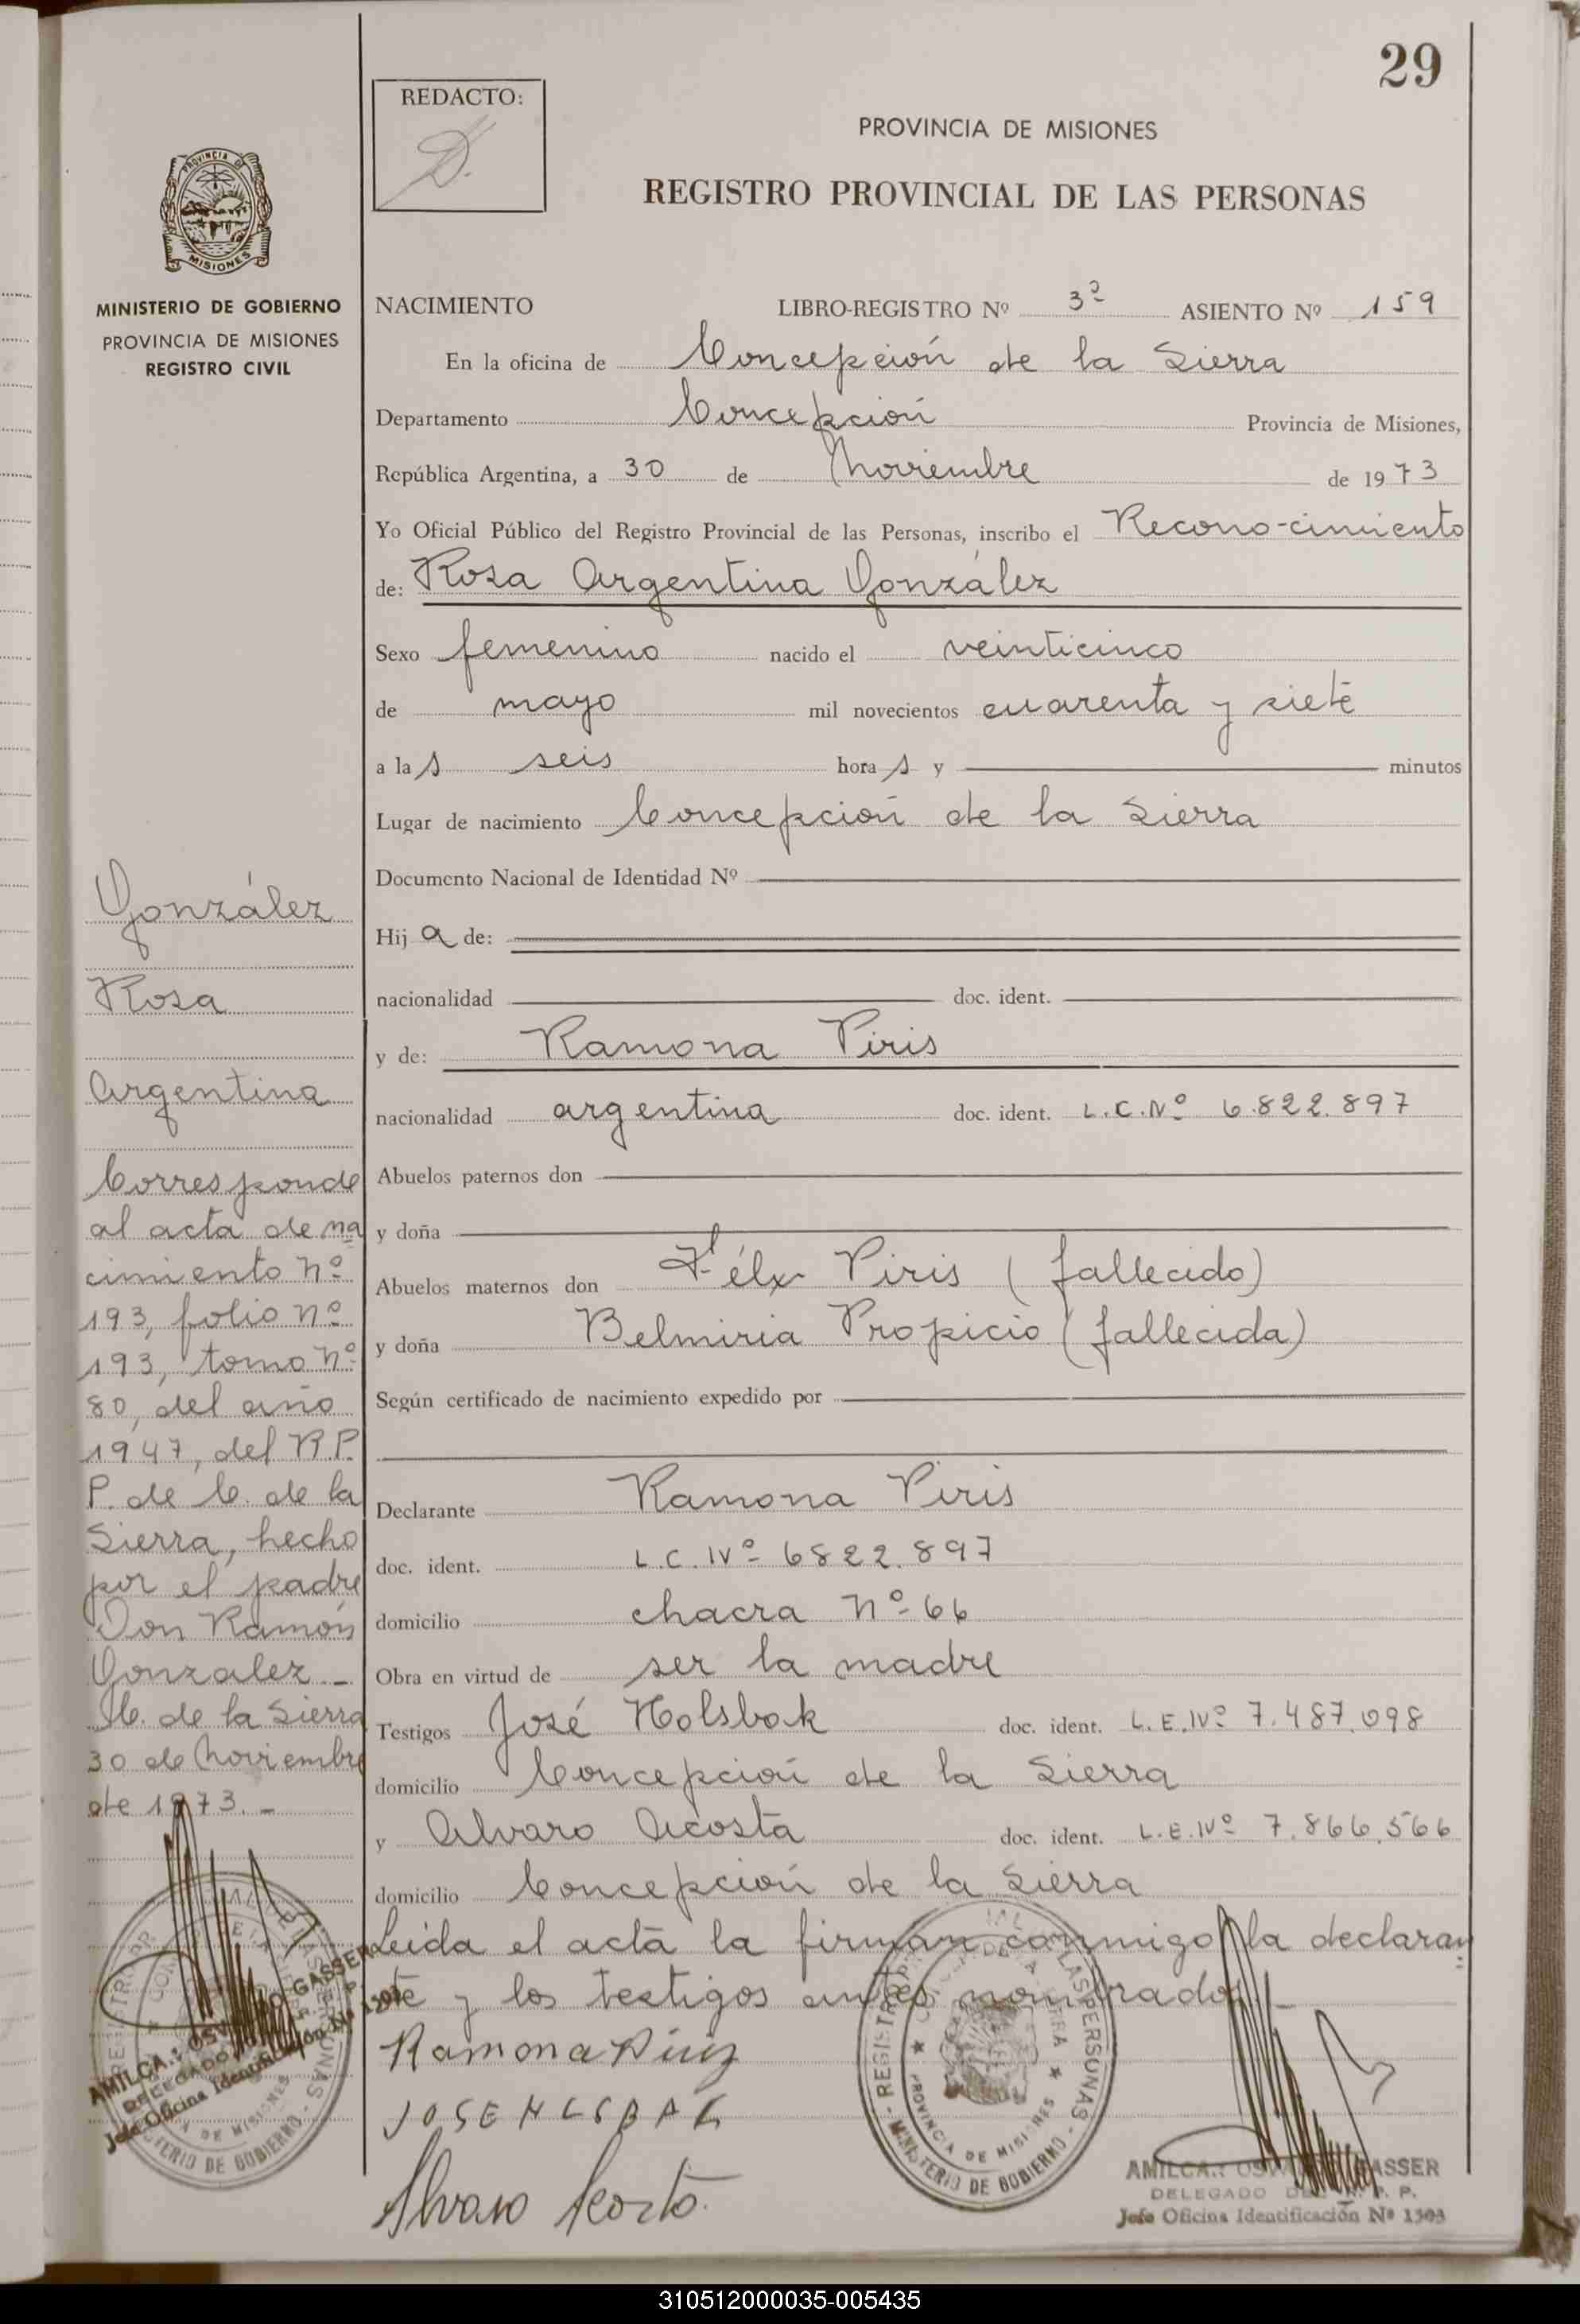 29
REDACTO:
D.
PROVINCIA DE MISIONES
REGISTRO PROVINCIAL DE LAS PERSONAS
PROVINCIA DE
MISIONES
MINISTERIO DE GOBIERNO
PROVINCIA DE MISIONES
REGISTRO CIVIL
NACIMIENTO LIBRO-REGISTRO Nº 3º ASIENTO Nº 159
En la oficina de Concepción de la Sierra
Departamento Concepción Provincia de Misiones,
República Argentina, a 30 de Noviembre de 1973
Yo Oficial Público del Registro Provincial de las Personas, inscribo el Recono-cimiento
de: Rosa Argentina González
Sexo femenino nacido el veinticinco
de mayo mil novecientos cuarenta y siete
a las seis horas y minutos
Lugar de nacimiento Concepción de la Sierra
Documento Nacional de Identidad Nº
Hija de:
nacionalidad doc. ident.
y de: Ramona Piris
nacionalidad argentina doc. ident. L.C.Nº 6.822.897
Abuelos paternos don
y doña
Abuelos maternos don Félix Piris (fallecido)
y doña Belmiria Propicio (fallecida)
Según certificado de nacimiento expedido por
Declarante Ramona Piris
doc. ident. L.C.Nº 6822.897
domicilio chacra Nº 66
Obra en virtud de ser la madre
Testigos José Holsbak doc. ident. L.E.Nº 7.487.098
domicilio Concepción de la Sierra
y Alvaro Acosta doc. ident. L.E.Nº 7.866.566
domicilio Concepción de la Sierra
Leida el acta la firman conmigo la declaran
te y los testigos antes nombrados.
Ramona Piriz
Alvaro Acosta
González
Rosa
Argentina
Corresponde
al acta de na
cimiento Nº
193, folio Nº
193, tomo Nº
80, del año
1947, del R.P.
P. de C. de la
Sierra, hecho
por el padre
Don Ramón
Gonzalez._
C. de la Sierra
30 de Noviembre
de 1973._
AMILCAR OSVALDO GASSER
DELEGADO DEL R. P. P.
Jefe Oficina Identificación Nº 1503
REGISTRO PROVINCIAL DE LAS PERSONAS
MINISTERIO DE GOBIERNO
PROVINCIA DE MISIONES
AMILCAR OSVALDO GASSER
DELEGADO DEL R. P. P.
Jefe Oficina Identificación Nº 1503
310512000035-005435